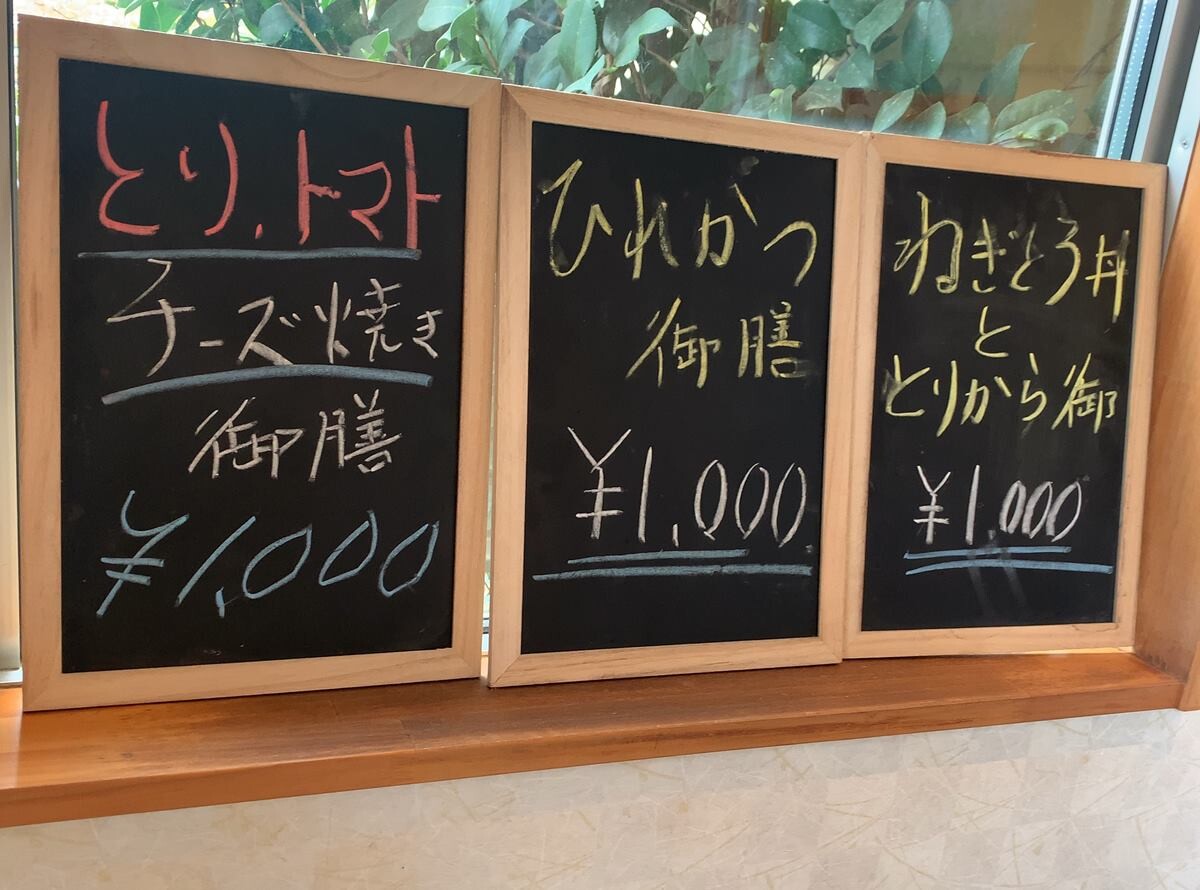 とり.トマト
チーズ焼き
御膳
¥1,000
ひれかつ
御膳
¥1,000
ねぎとろ丼
と
とりから御
¥1,000